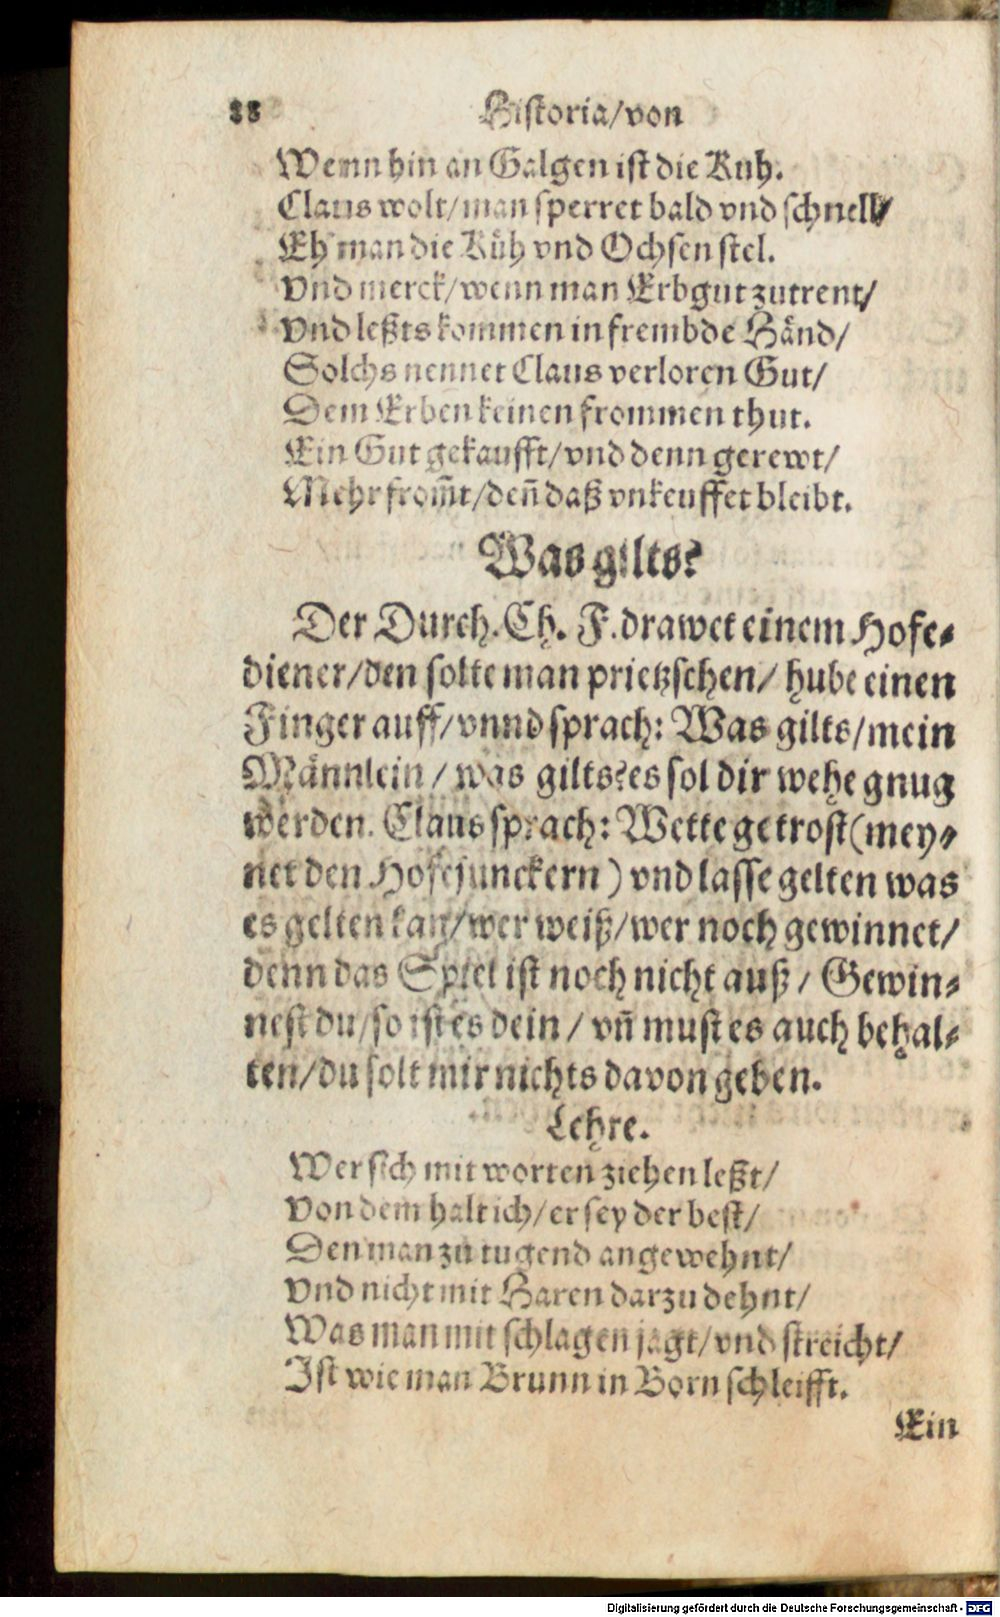 88 Historia/von
Wenn hin an Galgen ist die Kuh.
Claus wolt/man sperret bald vnd schnell/
Eh man die Küh vnd Ochsen stel.
Vnd merck/wenn man Erbgut zutrent/
Vnd leßts kommen in frembde Händ/
Solchs nennet Claus verloren Gut/
Dem Erben keinen frommen thut.
Ein Gut gekaufft/vnd denn gerewt/
Mehr from̃t/deñ daß vnkeuffet bleibt.
Was gilts?
Der Durch. Ch. F. drawet einem Hofe-
diener/den solte man prietzschen/ hube einen
Finger auff/vnnd sprach: Was gilts/mein
Männlein / was gilts? es sol dir wehe gnug
werden. Claus sprach: Wette getrost (mey-
net den Hofejunckern) vnd lasse gelten was
es gelten kan/wer weiß/wer noch gewinnet/
denn das Spiel ist noch nicht auß / Gewin-
nest du/so ist es dein / vñ must es auch behal-
ten/du solt mir nichts davon geben.
Lehre.
Wer sich mit worten ziehen leßt/
Von dem halt ich/er sey der best/
Den man zu tugend angewehnt/
Vnd nicht mit Haren darzu dehnt/
Was man mit schlagen jagt/vnd streicht/
Ist wie man Brunn in Born schleifft.
Ein
Digitalisierung gefördert durch die Deutsche Forschungsgemeinschaft - DFG